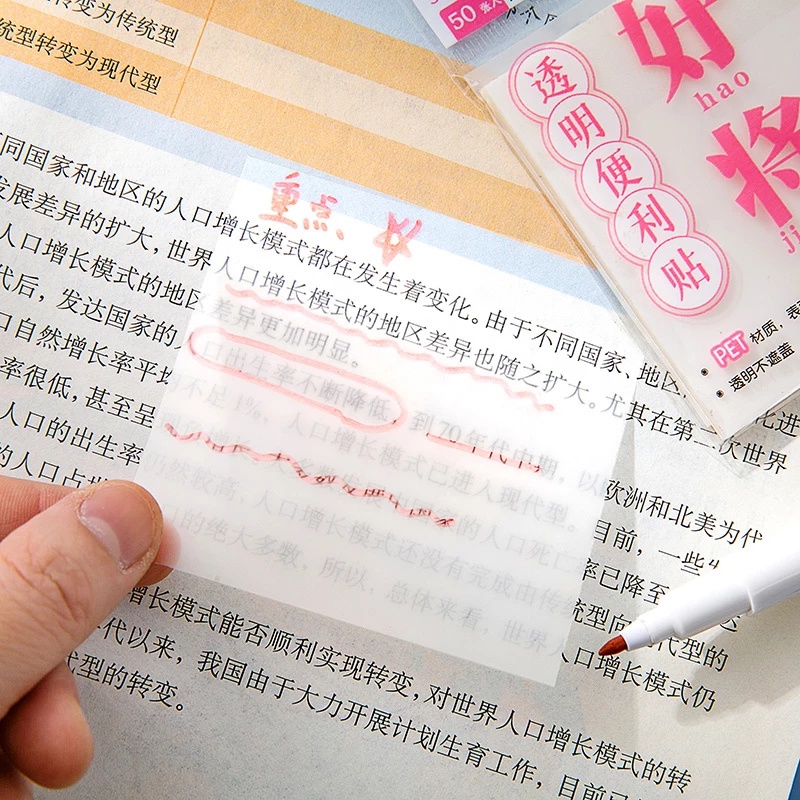 转变为传统型
统型转变为现代型
不同国家和地区的人口增长模式都在发生着变化。由于不同国家、地区
发展差异的扩大，世界人口增长模式的地区差异也随之扩大。尤其在第二次世界
人口增长模式的地区差异更加明显。
代后，发达国家的人口出生率不断降低，到70年代中期，以欧洲和北美为代
口自然增长率平均不足1%，人口增长模式已进入现代型。目前，一些
率很低，甚至呈
人口的出生率仍然较高，人口增长模式还没有完成由传统型向现代型的
的人口占世界人口的绝大多数，所以，总体来看，世界人口增长模式仍
增长模式能否顺利实现转变，对世界人口增长模式的转
年代以来，我国由于大力开展计划生育工作，目前已
代型的转变。
重点
50张入
好
hao
将
透明便利贴
PET材质，表
透明不遮盖